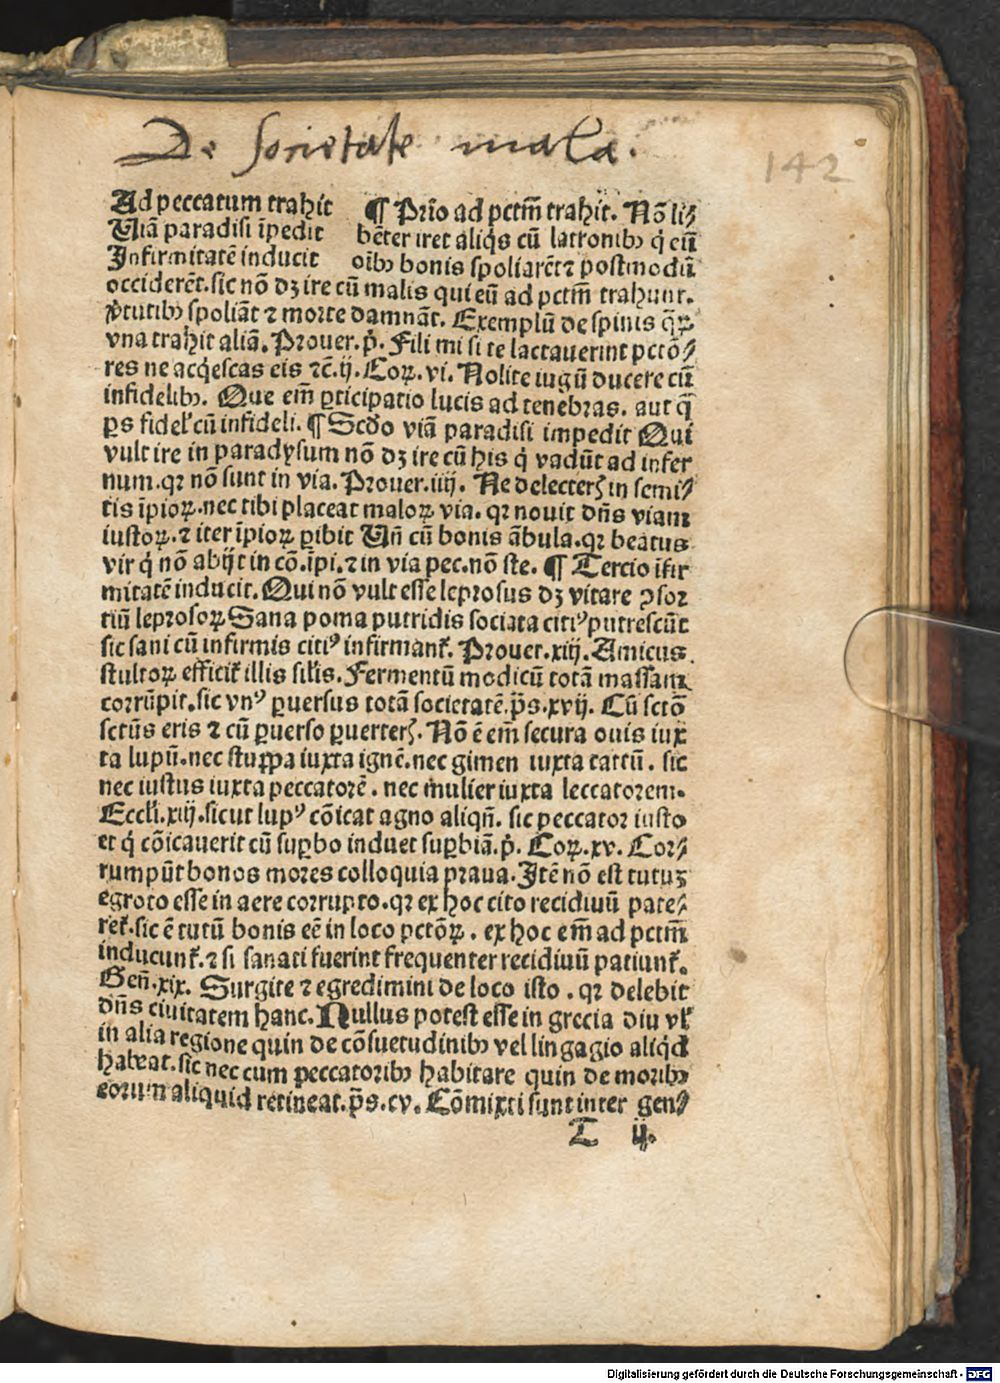 De Societate mala.
142
Ad peccatum trahit ¶ Prīo ad pctm̄ trahit. Nō li⸗
Uiā paradisi īpedit bēter iret aliq̇s cū latronibꝫ q̇ eū
Infirmitatē inducit oībꝫ bonis spoliarēt ⁊ postmodū
occiderēt. sic nō dꝫ ire cū malis qui eū ad pctm̄ trahunt.
v̓tutibꝫ spoliāt ⁊ morte damnāt. Exemplū de spinis q̄ꝝ
vna trahit aliā. Prouer. p̓. Fili mi si te lactauerint pctō⸗
res ne acq̇escas eis ⁊c̄. ij. Coꝝ. vi. Nolite iugū ducere cū
infidelibꝫ. Que em̄ ꝑticipatio lucis ad tenebras. aut q̄
ꝑs fidel̓ cū infideli. ¶ Scd̓o viā paradisi impedit Qui
vult ire in paradysum nō dꝫ ire cū his q̇ vadūt ad infer
num. qꝛ nō sunt in via. Prouer. iiij. Ne delecter̄ꝭ in semi⸗
tis īpioꝝ. nec tibi placeat maloꝝ via. qꝛ nouit dn̄s viam
iustoꝝ. ⁊ iter īpioꝝ ꝑibit Un̄ cū bonis ābula. qꝛ beatus
vir q̇ nō abijt in cō. īpi. ⁊ in via pec. nō ste. ¶ Tercio īfir
mitatē inducit. Qui nō vult esse leprosus dꝫ vitare ꝯsor
tiū leprosoꝝ Sana poma putridis sociata citiꝰ putrescūt
sic sani cū infirmis citiꝰ infirmant̓. Prouer. xiij. Amicus
stultoꝝ efficit̓ illis sil̓is. Fermentū modicū totā massam
corrūpit. sic vnꝰ ꝑuersus totā societatē. p̄s. xvij. Cū sctō
sctūs eris ⁊ cū ꝑuerso ꝑuerterꝭ. Nō ē em̄ secura ouis iux
ta lupū. nec stuppa iuxta ignē. nec gimen iuxta cattū. sic
nec iustus iuxta peccatorē. nec mulier iuxta leccatorem.
Eccl̓i. xiij. sicut lupꝰ cōicat agno aliqn̄. sic peccator iusto
et q̇ cōicauerit cū suꝑbo induet suꝑbiā. p̓. Coꝝ. xv. Cor⸗
rumpūt bonos mores colloquia praua. Itē nō est tutuꝫ
egroto esse in aere corrupto. qꝛ ex hoc cito recidiuū pate⸗
ret̓. sic ē tutū bonis eē in loco pctōꝝ. ex hoc em̄ ad pctm̄
inducunt̓. ⁊ si sanati fuerint frequenter recidiuū patiunt̓.
Gen̄. xix. Surgite ⁊ egredimini de loco isto. qꝛ delebit
dn̄s ciuitatem hanc. Nullus potest esse in grecia diu vl̓
in alia regione quin de cōsuetudinibꝫ vel lingagio aliq̇d
habeat. sic nec cum peccatoribꝫ habitare quin de moribꝫ
eorum aliquid retineat. p̄s. cv. Cōmixti sunt inter gen⸗
T ij.
Digitalisierung gefördert durch die Deutsche Forschungsgemeinschaft - DFG